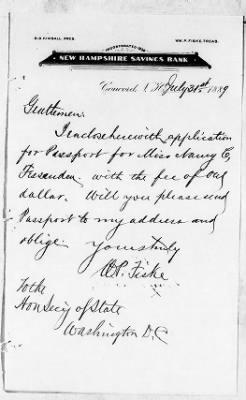 GEO KIMBALL, PRES.
WM. P. FISKE, TREAS.
INCORPORATED 1830
NEW HAMPSHIRE SAVINGS BANK
Concord, N.H. July 31st 1889
Gentlemen.
I enclose herewith application
for Passport for Miss Nancy C,
Fessenden. with the fee of one
dollar. Will you please send
Passport to my address and
oblige yours truly
W P. Fiske
To the
Hon Secy of State
Washington D.C